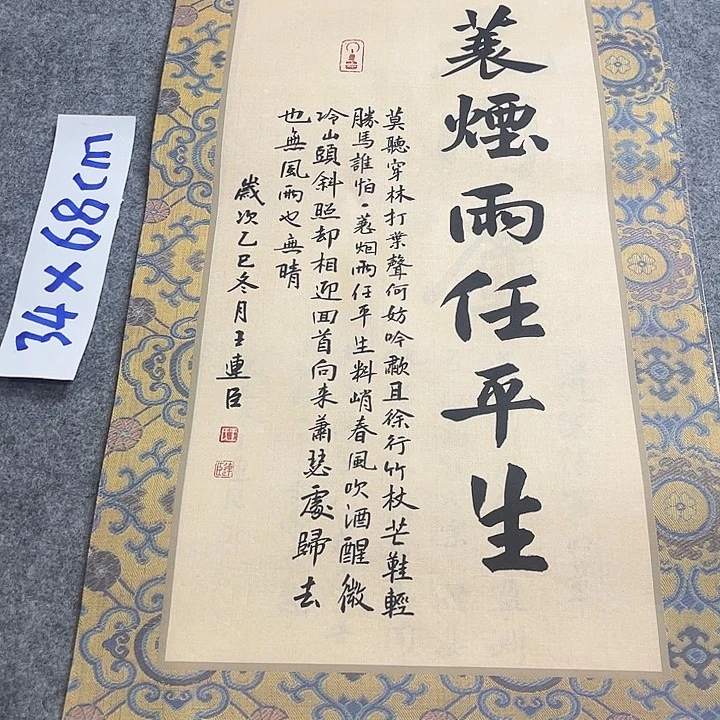 蓑煙雨任平生
莫聽穿林打葉聲何妨吟歗且徐行竹杖芒鞋輕
勝馬誰怕一蓑烟雨任平生料峭春風吹酒醒微
冷山頭斜照却相迎回首向来蕭瑟處歸去
也無風雨也無晴
歲次乙巳冬月王連臣
34×68cm